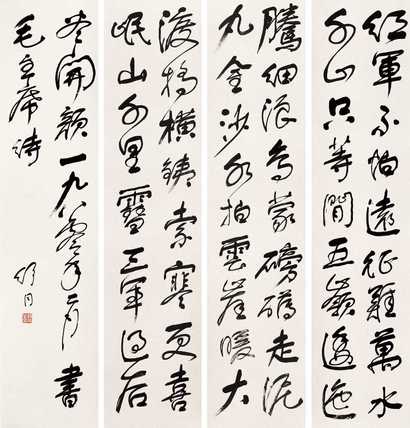 紅軍不怕遠征難萬水
千山只等閒五嶺逶迤
騰細浪烏蒙磅礴走泥
丸金沙水拍雲崖暖大
渡橋橫鐵索寒更喜
岷山千里雪三軍過后
尽開顏一九八零年二月書
毛主席詩